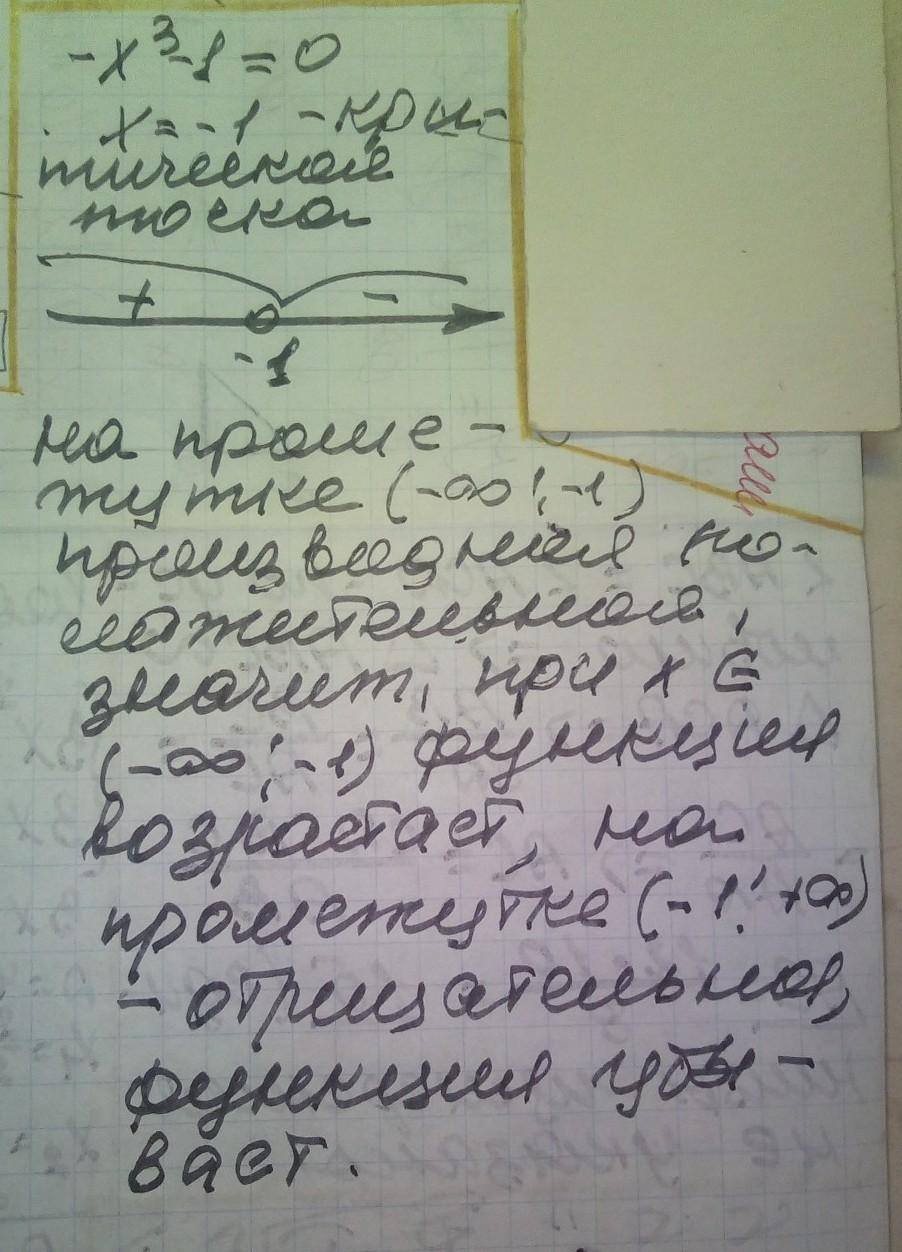 -x³-1=0
x=-1 -кри-
тическая
точка
+ -
-1
на проме-
жутке (-∞;-1)
производная по-
ложительная,
значит, при x ∈
(-∞;-1) функция
возрастает, на
промежутке (-1;+∞)
- отрицательная,
функция убы-
вает.